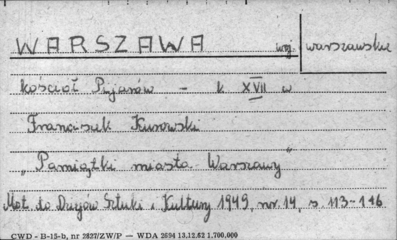 WARSZAWA woj. warszawskie
kościół Pijarów - k. XVII w
Franciszek Kurowski
"Pamiątki miasta Warszawy"
Mat. do Dziejów Sztuki i Kultury 1949, nr. 14, s. 113-116
CWD - B-15-b, nr 2827/ZW/P — WDA 2694 13.12.62 1.700.000